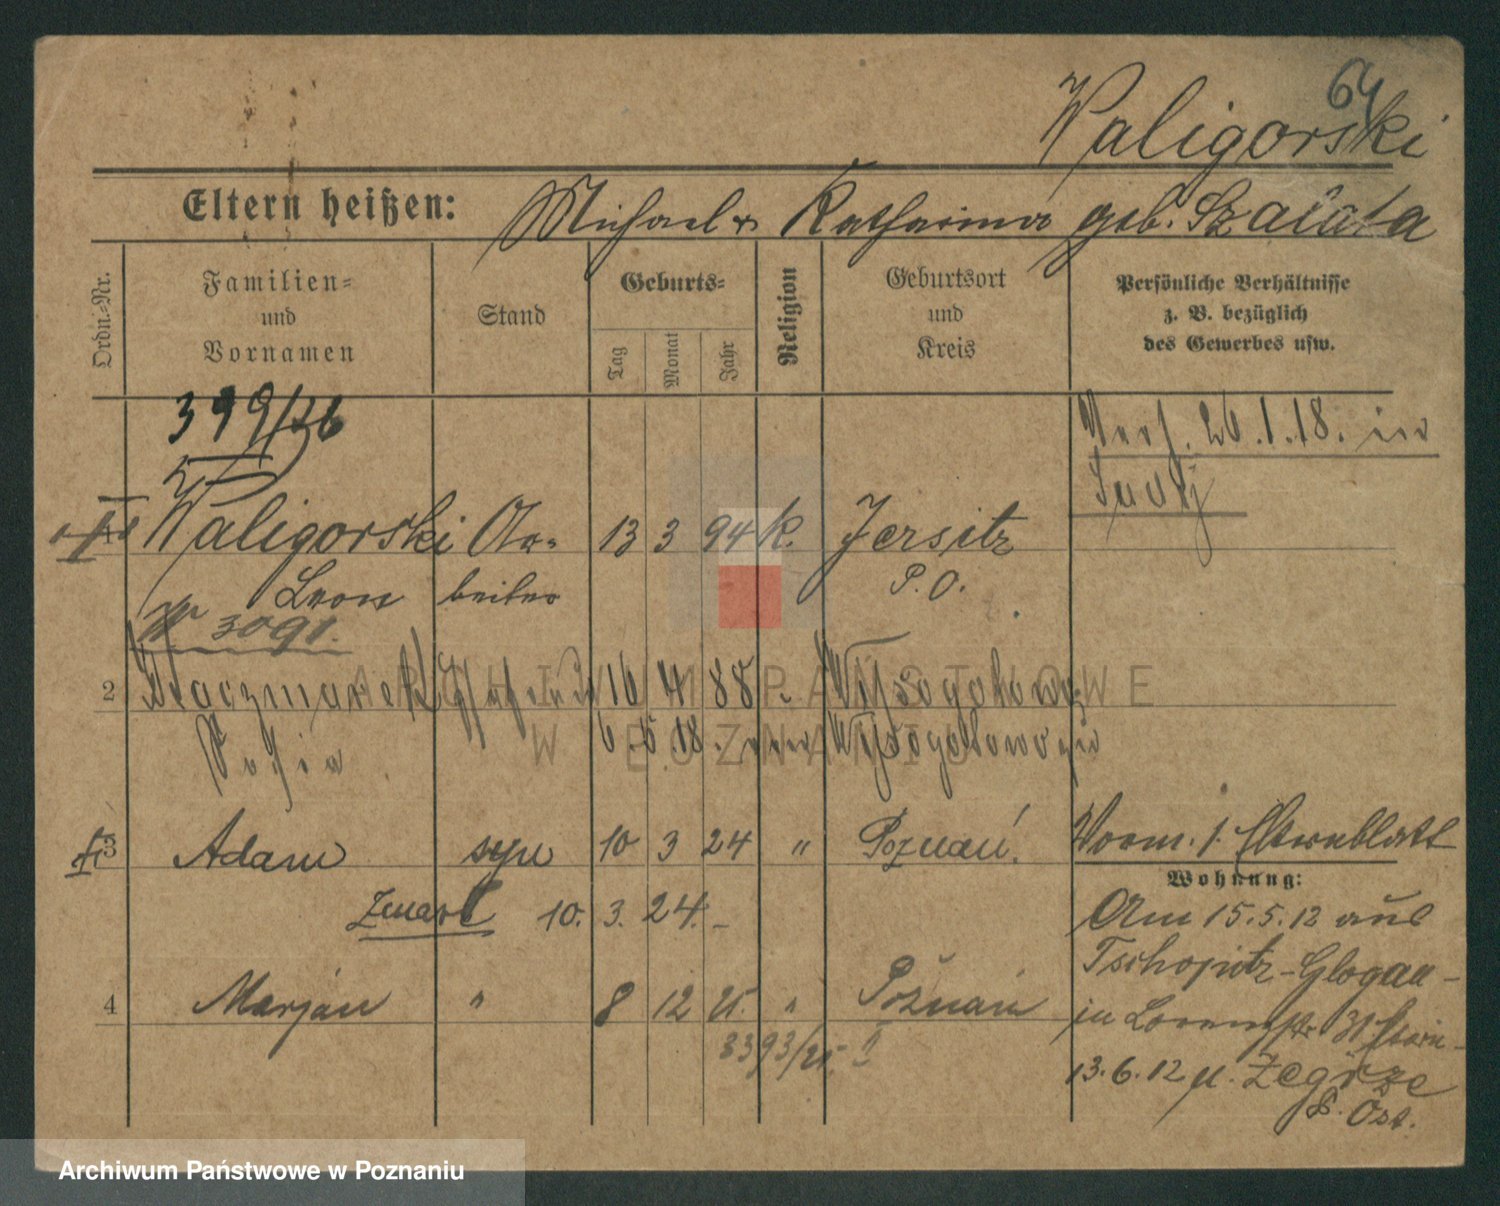 64
Waligorski
Eltern heißen: Michael & Katharina geb. Szałata
Ordn.-Nr.
Familien- und Vornamen
Stand
Geburts-
Tag
Monat
Jahr
Religion
Geburtsort und Kreis
Persönliche Verhältnisse z. B. bezüglich des Gewerbes usw.
399/26
Verh. 26.1.18. in
1 Waligorski Ar- 13 3 94 K. Jersitz
Leon beiter P.O.
3091.
2 Kaczmarek 16 4 88 Wysogotowo
Zofia 6.5.18.
3 Adam syn 10 3 24 " Poznań.
Vorm. s. Elternblatt
Zmarł 10. 3. 24. –
Wohnung:
Am 15.5.12 aus
Tschopitz-Glogau-
4 Marjan " 8 12 25. " Poznań
in 31
3393/25. II
13.6.12 n. Zegrze
P. Ost.
ARCHIWUM PAŃSTWOWE
W POZNANIU
Archiwum Państwowe w Poznaniu